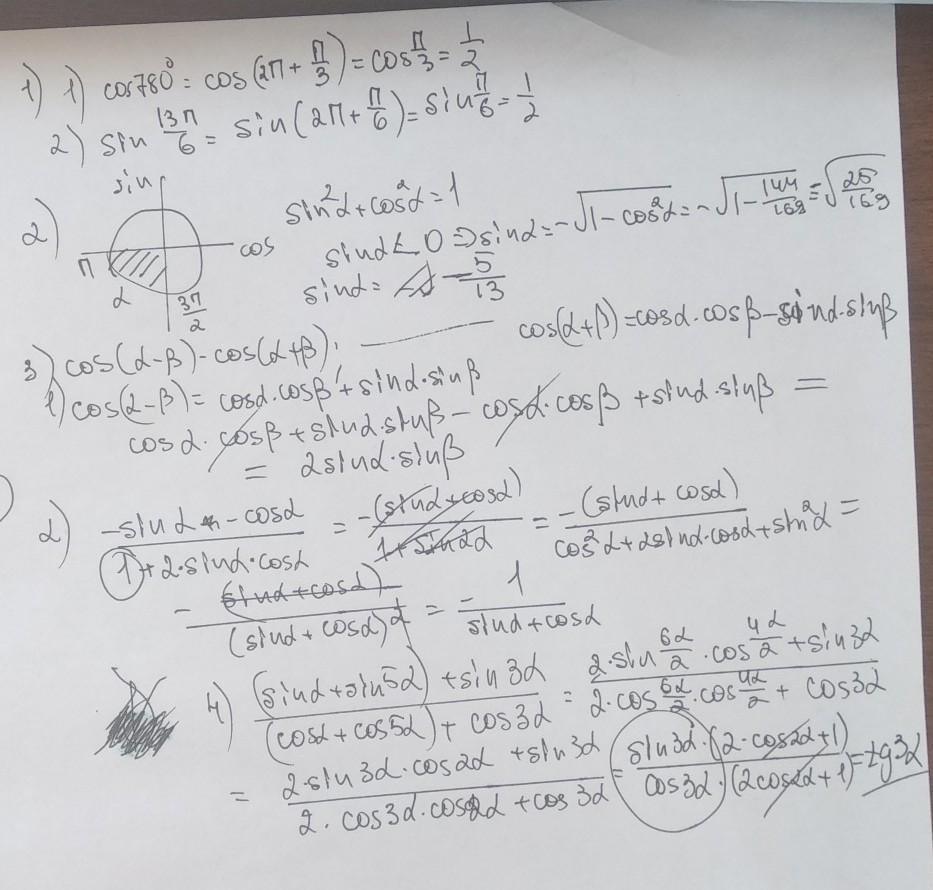 1) 1) cos780° = cos(2π + π/3) = cos π/3 = 1/2
2) sin 13π/6 = sin(2π + π/6) = sin π/6 = 1/2
2) sin cos π α 3π/2
sin²α + cos²α = 1
sinα < 0 => sinα = -√(1 - cos²α) = -√(1 - 144/169) = √(25/169)
sinα = -5/13
3) cos(α-β) - cos(α+β); cos(α+β) = cosα · cosβ - sinα · sinβ
1) cos(α-β) = cosα · cosβ + sinα · sinβ
cosα · cosβ + sinα · sinβ - cosα · cosβ + sinα · sinβ =
= 2sinα · sinβ
2) (-sinα - cosα)/(1 + 2·sinα·cosα) = -(sinα + cosα)/(1 + sin2α) = -(sinα + cosα)/(cos²α + 2sinα·cosα + sin²α) =
- (sinα + cosα)/(sinα + cosα)² = - 1/(sinα + cosα)
4) ((sinα + sin5α) + sin3α)/((cosα + cos5α) + cos3α) = (2·sin 6α/2 · cos 4α/2 + sin3α)/(2·cos 6α/2 · cos 4α/2 + cos3α)
= (2·sin3α·cos2α + sin3α)/(2·cos3α·cos2α + cos3α) = (sin3α·(2·cos2α+1))/(cos3α·(2cos2α+1)) = tg3α